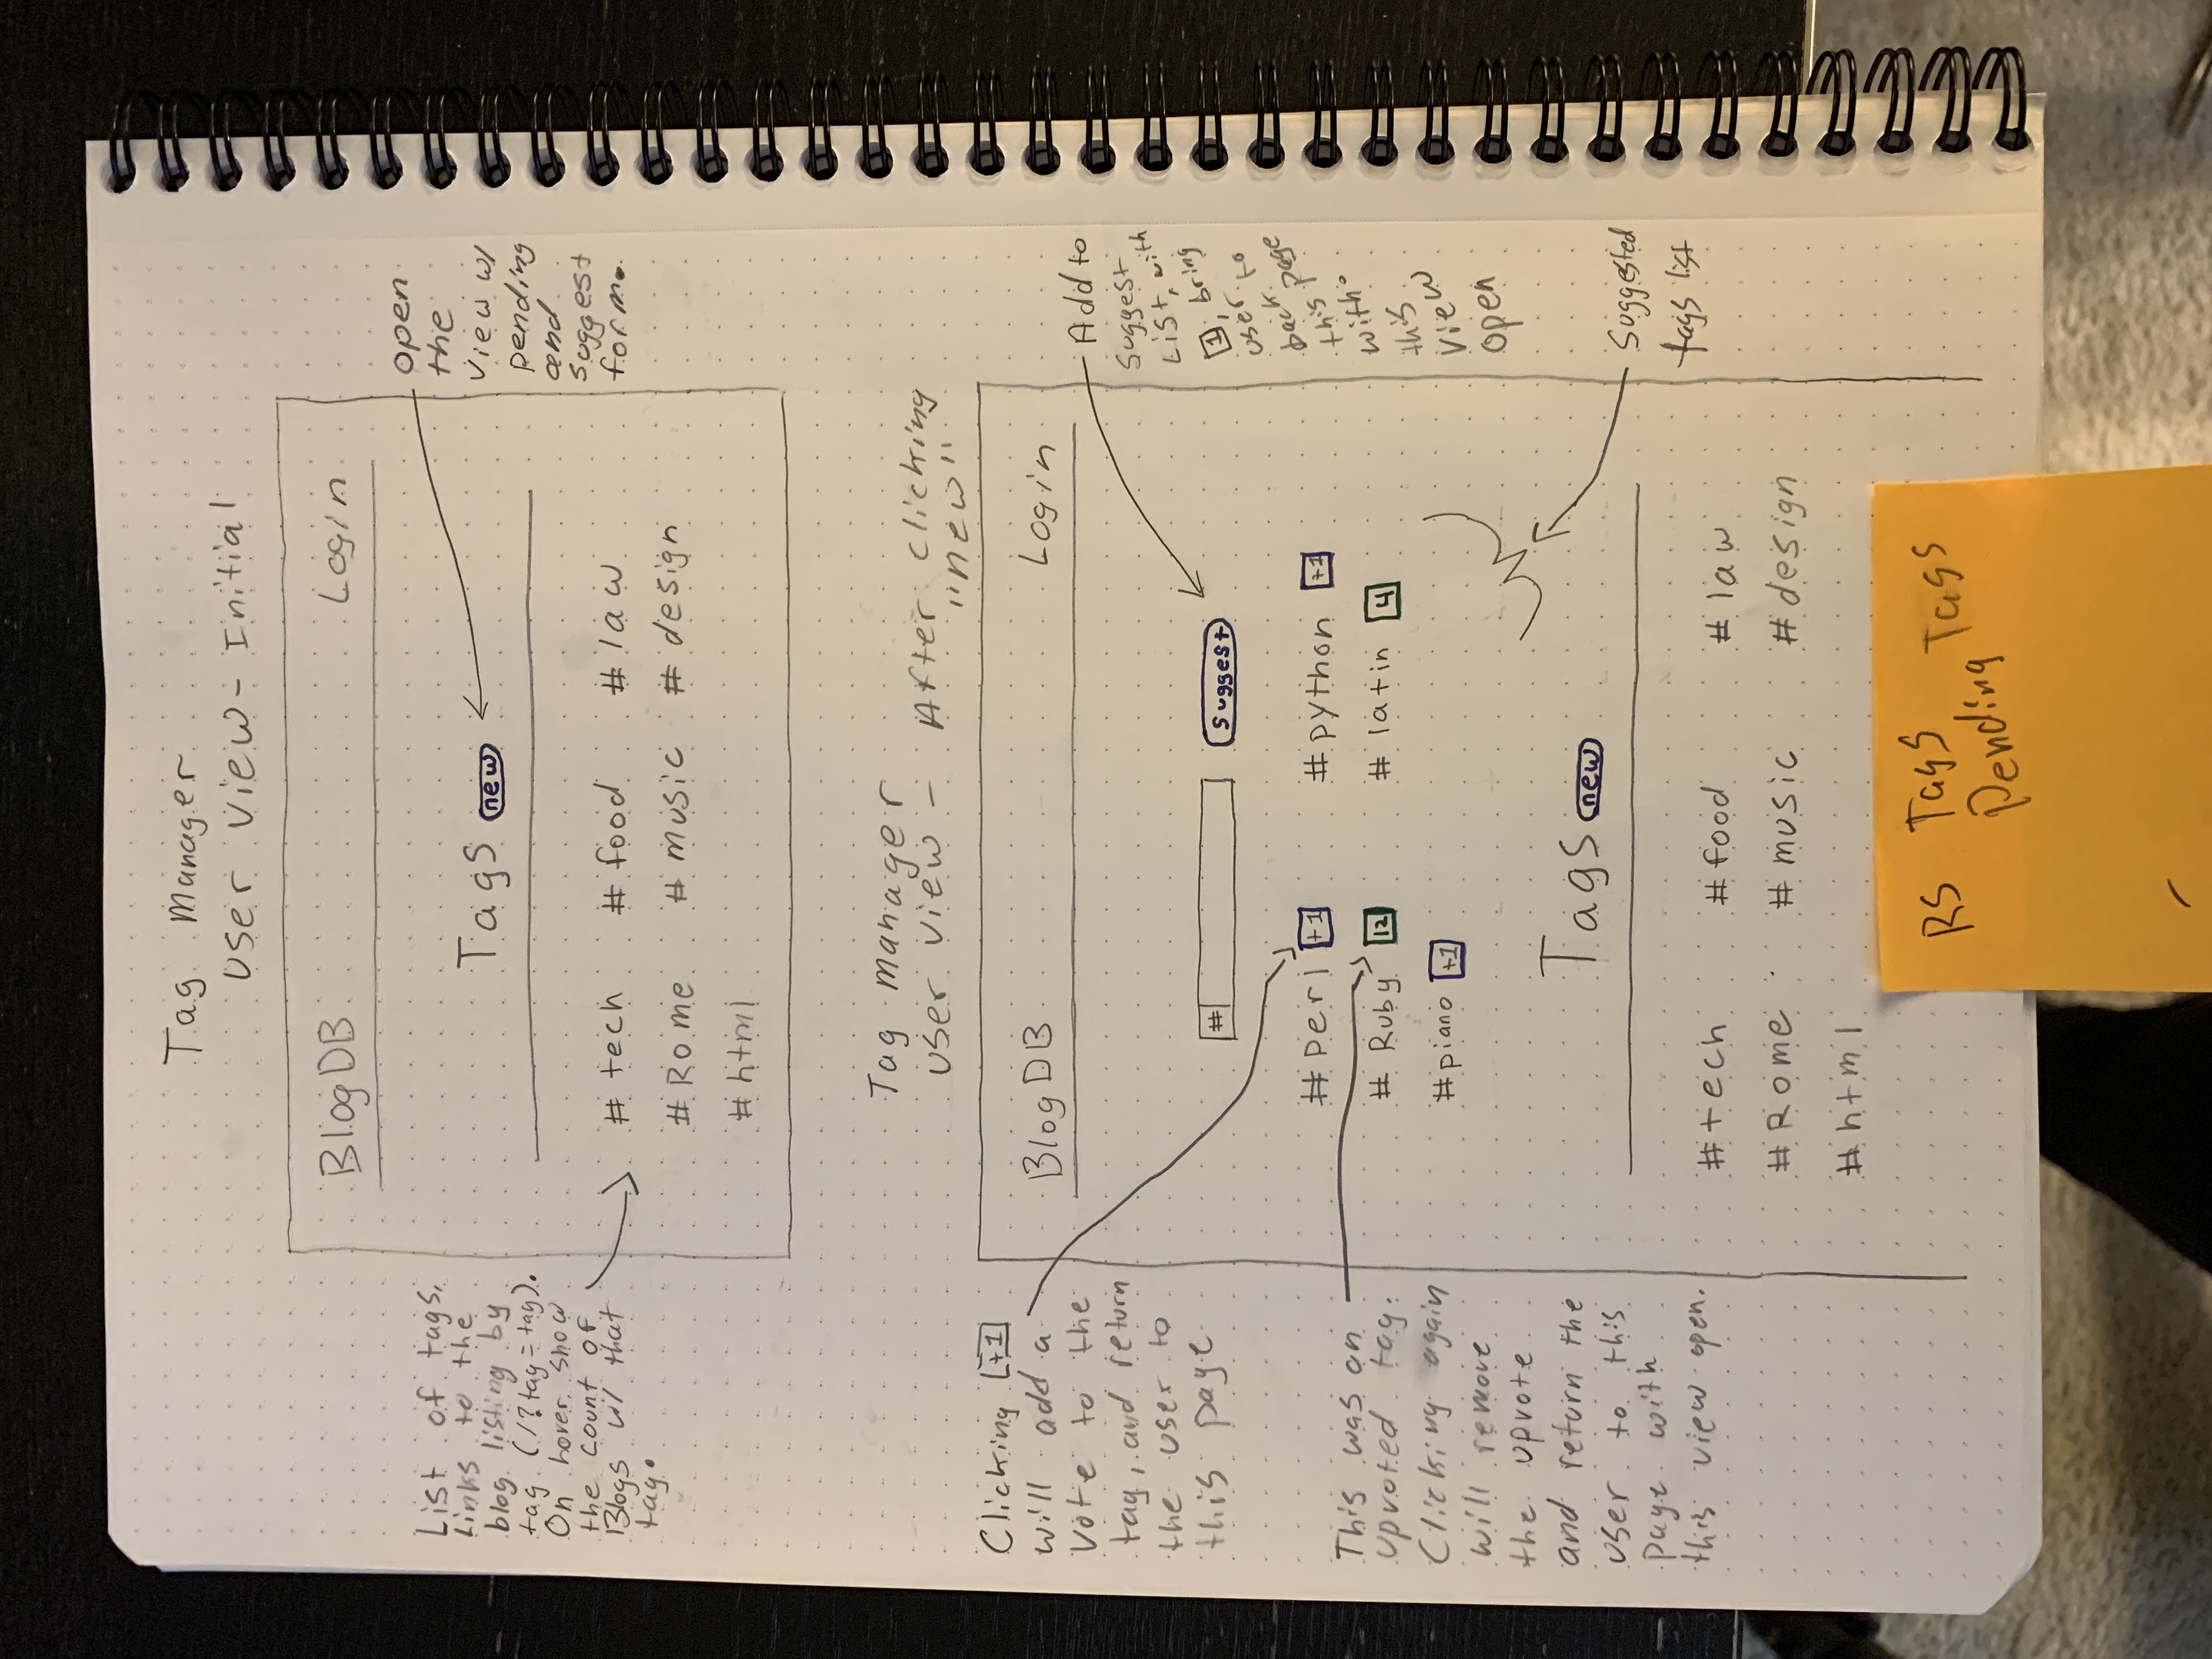 Tag Manager
User View - Initial
BlogDB Login
Tags new
#tech #food #law
#Rome #music #design
#html
open
the
view w/
pending
and
suggest
form.
List of tags,
Links to the
blog listing by
tag (/?tag=tag).
On hover show
the count of
Blogs w/ that
tag.
Tag Manager
User View - After clicking
"new"
BlogDB Login
# suggest
#perl +1 #python +1
#Ruby 12 #latin 4
#piano +1
Tags new
#tech #food #law
#Rome #music #design
#html
Add to
Suggest
List, with
1, bring
user to
back page
this
with
this
view
open
Suggested
tags list
Clicking +1
will add a
vote to the
tag, and return
the user to
this page
This was an
upvoted tag.
Clicking again
will remove
the upvote
and return the
user to this
page with
this view open.
RS Tags
Pending Tags